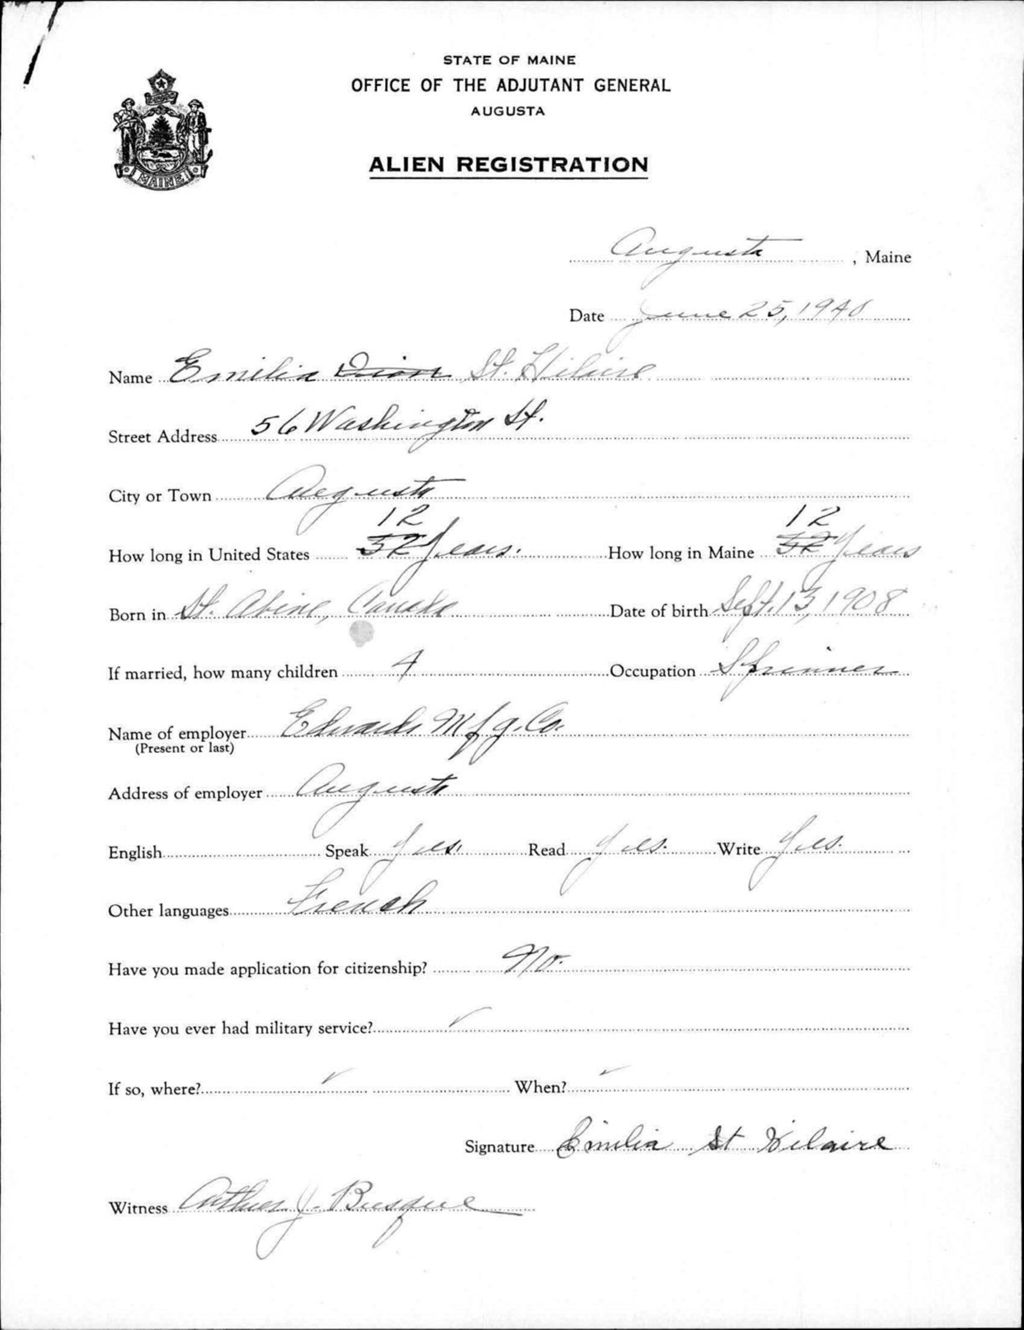 STATE OF MAINE
OFFICE OF THE ADJUTANT GENERAL
AUGUSTA
ALIEN REGISTRATION
MAINE
Augusta, Maine
Date June 25, 1940
Name Emilia Dion St. Hilaire
Street Address 56 Washington St.
City or Town Augusta
12 12
How long in United States 32 Years. How long in Maine 32 Years
Born in St. Abine, Canada Date of birth Sept. 13, 1908
If married, how many children 4 Occupation Spinner
Name of employer Edwards Mfg. Co.
(Present or last)
Address of employer Augusta
English Speak Yes. Read Yes. Write Yes.
Other languages French
Have you made application for citizenship? No.
Have you ever had military service? ✓
If so, where? ✓ When? ✓
Signature Emilia St Hilaire
Witness Arthur J. Busque